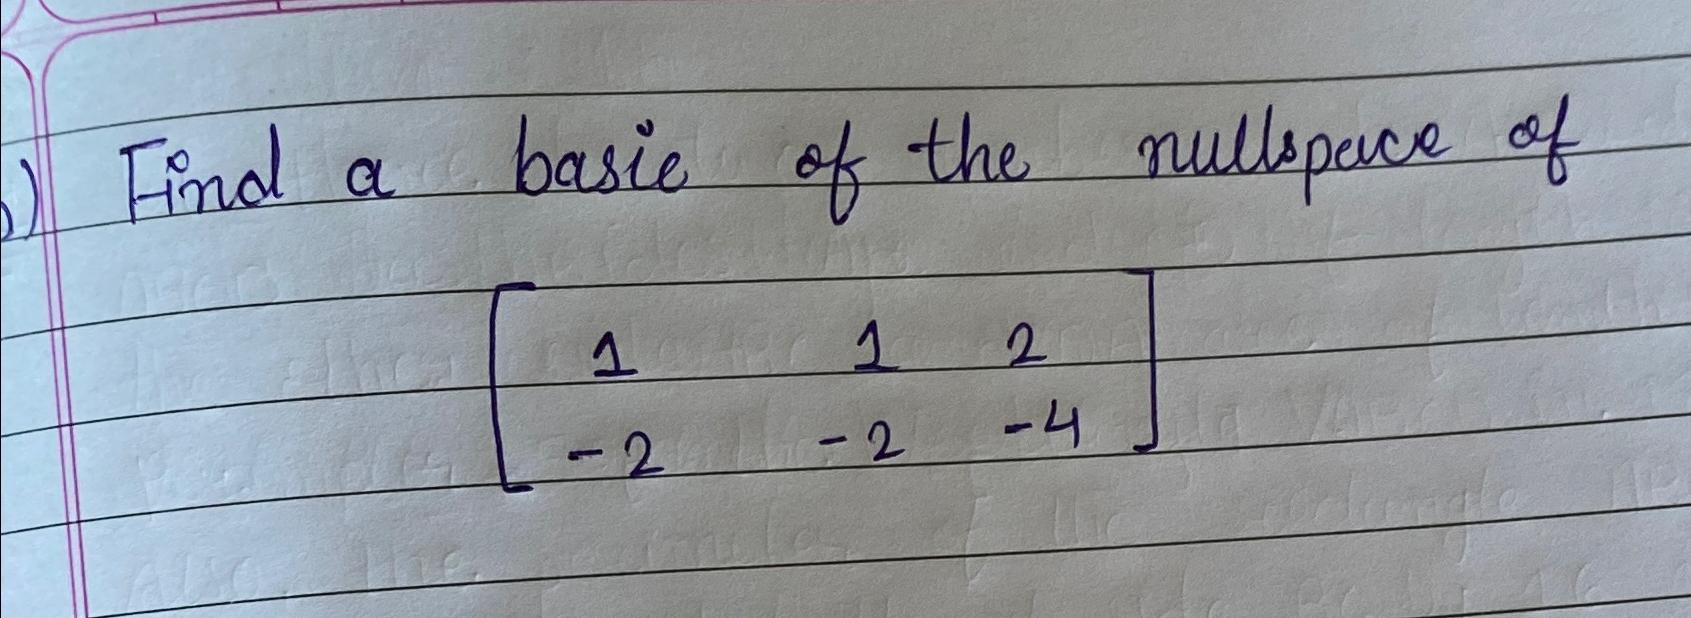 ) Find a basie of the nullspace of
1 1 2
-2 -2 -4